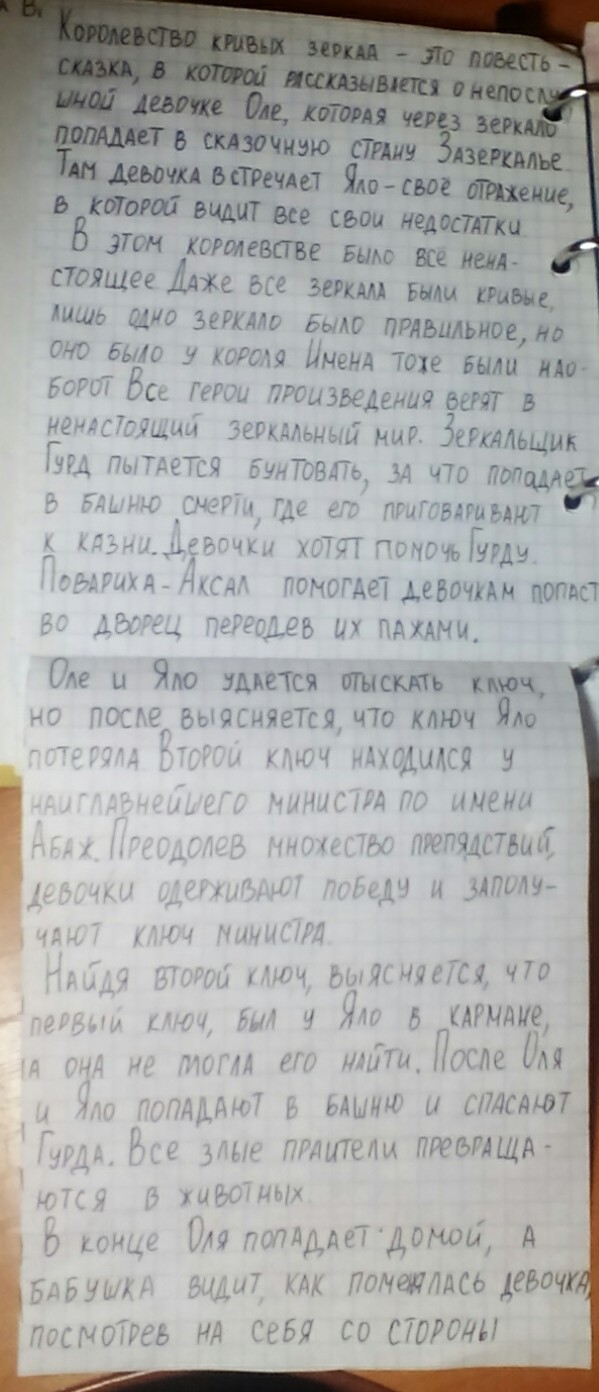 В.
Королевство кривых зеркал – это повесть-
сказка, в которой рассказывается о непослу
шной девочке Оле, которая через зеркало
попадает в сказочную страну Зазеркалье.
Там девочка встречает Яло – своё отражение,
в которой видит все свои недостатки
В этом королевстве было всё нена-
стоящее Даже все зеркала были кривые,
лишь одно зеркало было правильное, но
оно было у короля Имена тоже были нао-
борот Все герои произведения верят в
ненастоящий зеркальный мир. Зеркальщик
Гурд пытается бунтовать, за что попадает
в башню смерти, где его приговаривают
к казни. Девочки хотят помочь Гурду.
Повариха – Аксал помогает девочкам попаст
во дворец переодев их пажами.
Оле и Яло удаётся отыскать ключ,
но после выясняется, что ключ Яло
потеряла Второй ключ находился у
наиглавнейшего министра по имени
Абаж. Преодолев множество препядствий,
девочки одерживают победу и заполу-
чают ключ министра.
Найдя второй ключ, выясняется, что
первый ключ, был у Яло в кармане,
а она не могла его найти. После Оля
и Яло попадают в башню и спасают
Гурда. Все злые праители превраща-
ются в животных
В конце Оля попадает домой, а
бабушка видит, как поменялась девочка,
посмотрев на себя со стороны